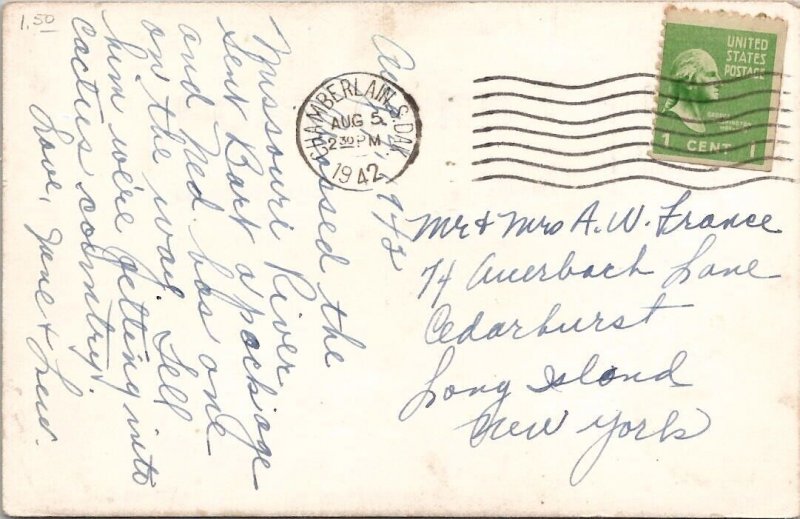 1.50
Aug 5, 1942
Crossed the
Missouri River
Sent Bart a package
and Ned has one
on the way. Tell
him we're getting into
cactus country!
Love, June & Lew.
CHAMBERLAIN, S.DAK.
AUG 5
2 30 PM
1942
UNITED
STATES
POSTAGE
GEORGE
WASHINGTON
1 CENT 1
Mr & Mrs A.W. France
74 Auerbach Lane
Cedarhurst
Long Island
New York